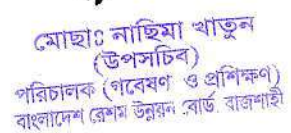 মোছাঃ নাছিমা খাতুন
(উপসচিব)
পরিচালক (গবেষণ ও প্রশিক্ষণ)
বাংলাদেশ রেশম উন্নয়ন বোর্ড রাজশাহী